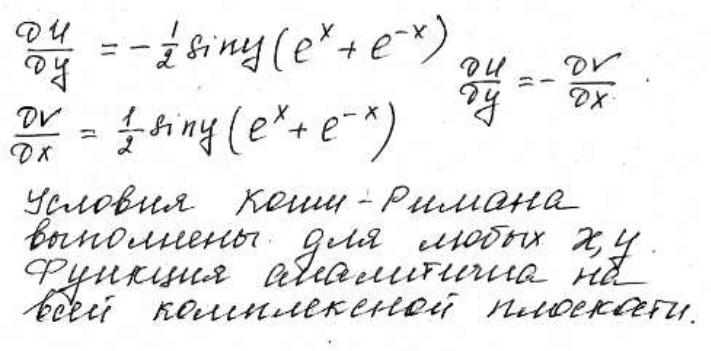 ∂U/∂y = -1/2 sin y (e^x + e^{-x}) ∂U/∂y = - ∂V/∂x.
∂V/∂x = 1/2 sin y (e^x + e^{-x})
Условия Коши-Римана
выполнены для любых x, y.
Функция аналитична на
всей комплексной плоскости.